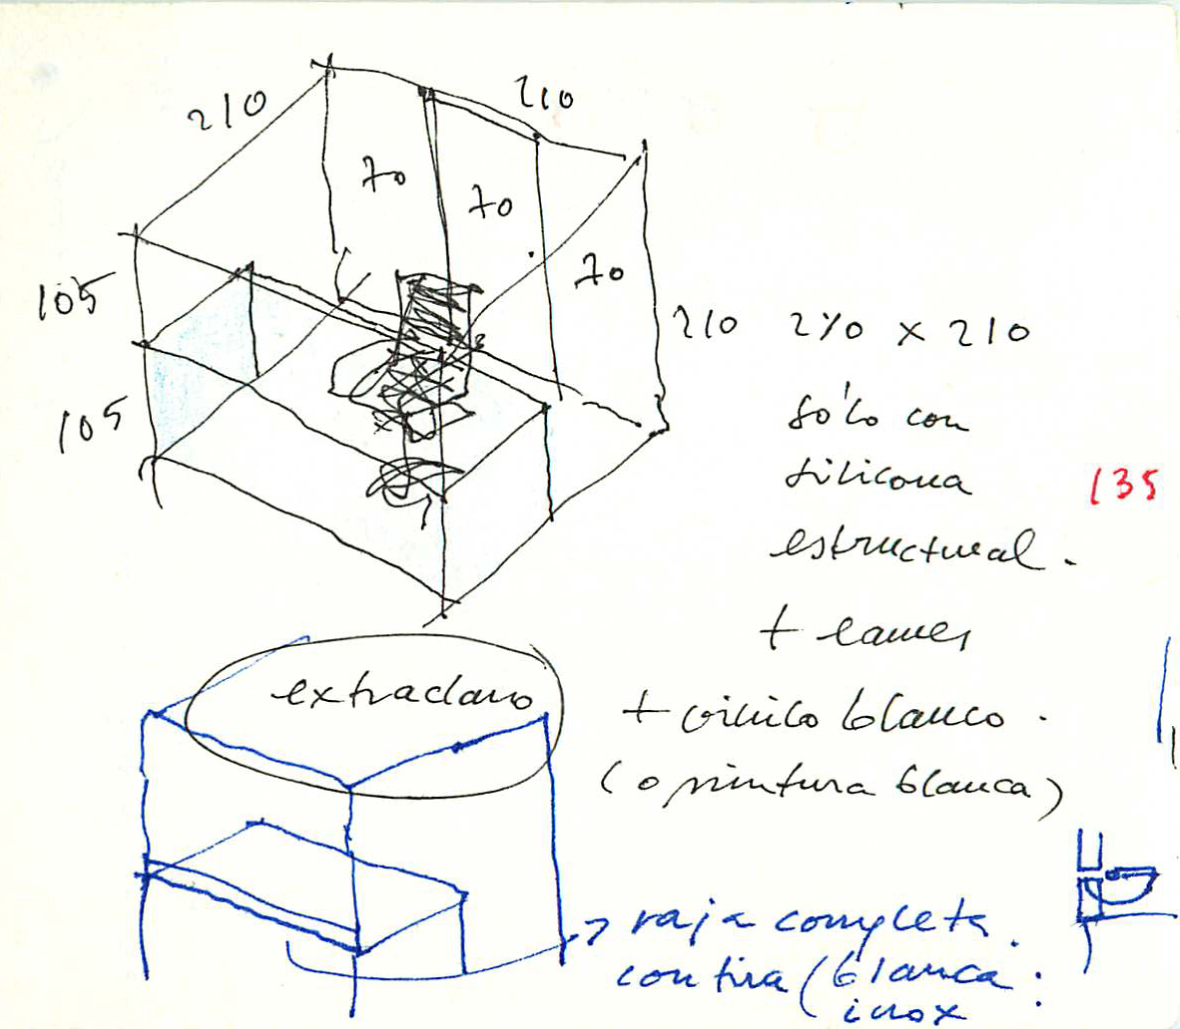 210
210
70
70
70
105
105
210 210 x 210
sólo con
silicona
135
estructural.
+ canes
extraclaro
+ vinilo blanco.
(o pintura blanca)
raja completa.
con tira (blanca
inox